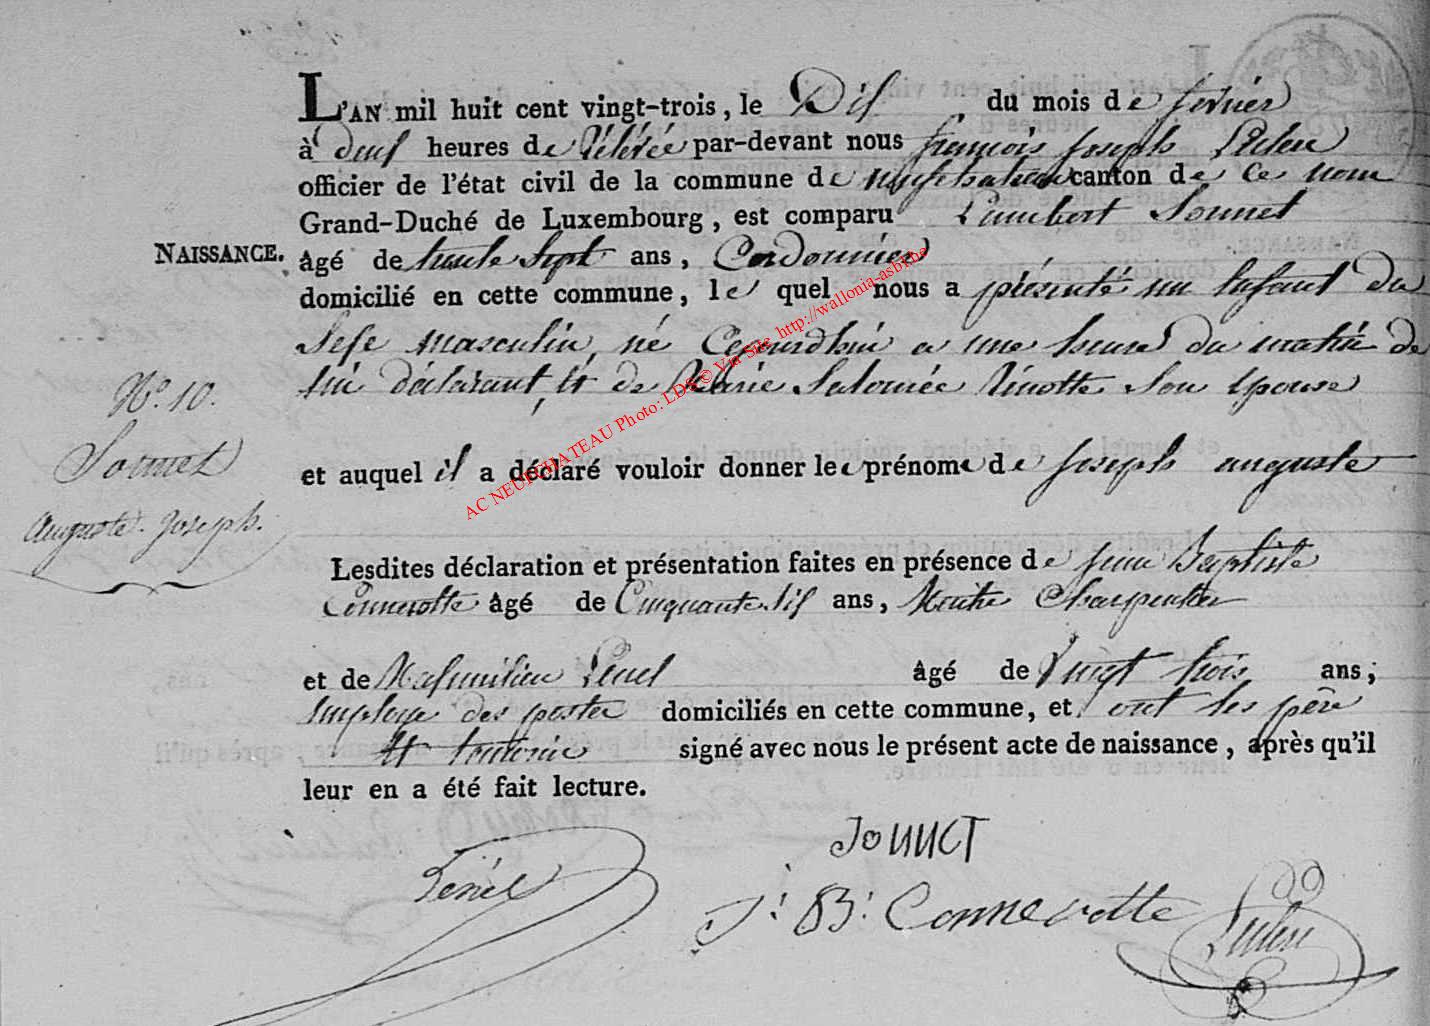 L'AN mil huit cent vingt-trois, le Dix du mois de fevrier
à deux heures de Rélévée par-devant nous françois joseph
officier de l'état civil de la commune de neufchateau canton de ce nom
Grand-Duché de Luxembourg, est comparu Lambert Sonnet
NAISSANCE. âgé de trente Sept ans, Cordonnier
domicilié en cette commune, le quel nous a présenté un Enfant du
Sexe masculin, né Cejourdhui a une heure du matin de
lui déclarant, et de Marie Salomée Pinotte Son Epouse
No. 10.
Sonnet
Auguste Joseph.
et auquel il a déclaré vouloir donner le prénom de joseph auguste
Lesdites déclaration et présentation faites en présence de jean Baptiste
Connerotte âgé de Cinquante six ans, Maitre Charpentier
et de Maximilien âgé de Vingt trois ans;
Employe des postes domiciliés en cette commune, et ont les père
et temoins signé avec nous le présent acte de naissance, après qu'il
leur en a été fait lecture.
Sonnet
J. B. Connerotte
AC NEUFCHATEAU Photo: LDS © Via Site http://wallonia-asbl.be